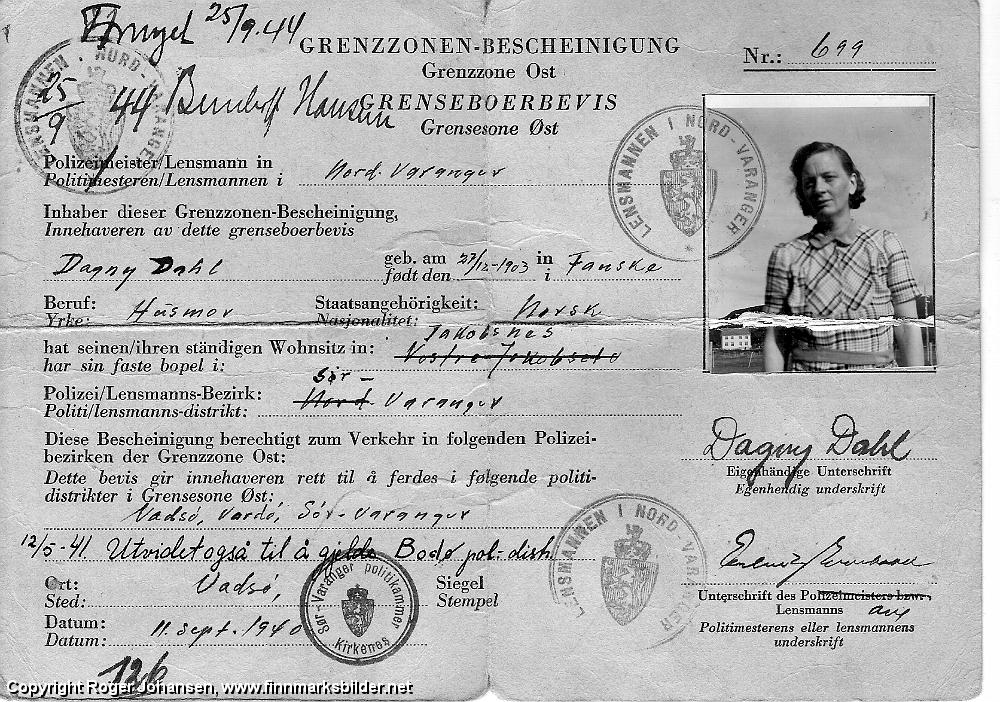 25/9-44
GRENZZONEN-BESCHEINIGUNG
Nr.: 699
Grenzzone Ost
25/9 44 Hansen
GRENSEBOERBEVIS
Grensesone Øst
LENSMANNEN I NORD-VARANGER
LENSMANNEN I NORD-VARANGER
Polizeimeister/Lensmann in
Politimesteren/Lensmannen i Nord-Varanger
Inhaber dieser Grenzzonen-Bescheinigung,
Innehaveren av dette grenseboerbevis
Dagny Dahl geb. am 27/12-1903 in Fauske
født den i
Beruf: Husmor Staatsangehörigkeit: Norsk
Yrke: Nasjonalitet:
Jakobsnes
hat seinen/ihren ständigen Wohnsitz in: Vestre-Jakobselv
har sin faste bopel i:
Sør-
Polizei/Lensmanns-Bezirk: Nord-Varanger
Politi/lensmanns-distrikt:
Diese Bescheinigung berechtigt zum Verkehr in folgenden Polizei-
bezirken der Grenzzone Ost:
Dette bevis gir innehaveren rett til å ferdes i følgende politi-
distrikter i Grensesone Øst:
Vadsö, Vardö, Sör-Varanger
12/5-41. Utvidet også til å gjelde Bodø pol-distr.
Ort: Vadsö, Siegel
Sted: Stempel
Datum: 11. sept. 1940
Datum:
Sør-Varanger politikammer
Kirkenes
126
Dagny Dahl
Eigenhändige Unterschrift
Egenhendig underskrift
LENSMANNEN I NORD-VARANGER
Unterschrift des Polizeimeisters bzw.
Lensmanns
Politimesterens eller lensmannens
underskrift
Copyright Roger Johansen, www.finnmarksbilder.net